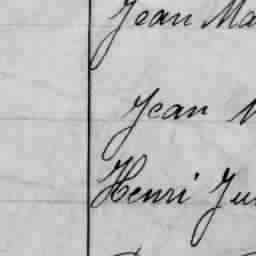 Jean Ma
Jean
Henri Ju